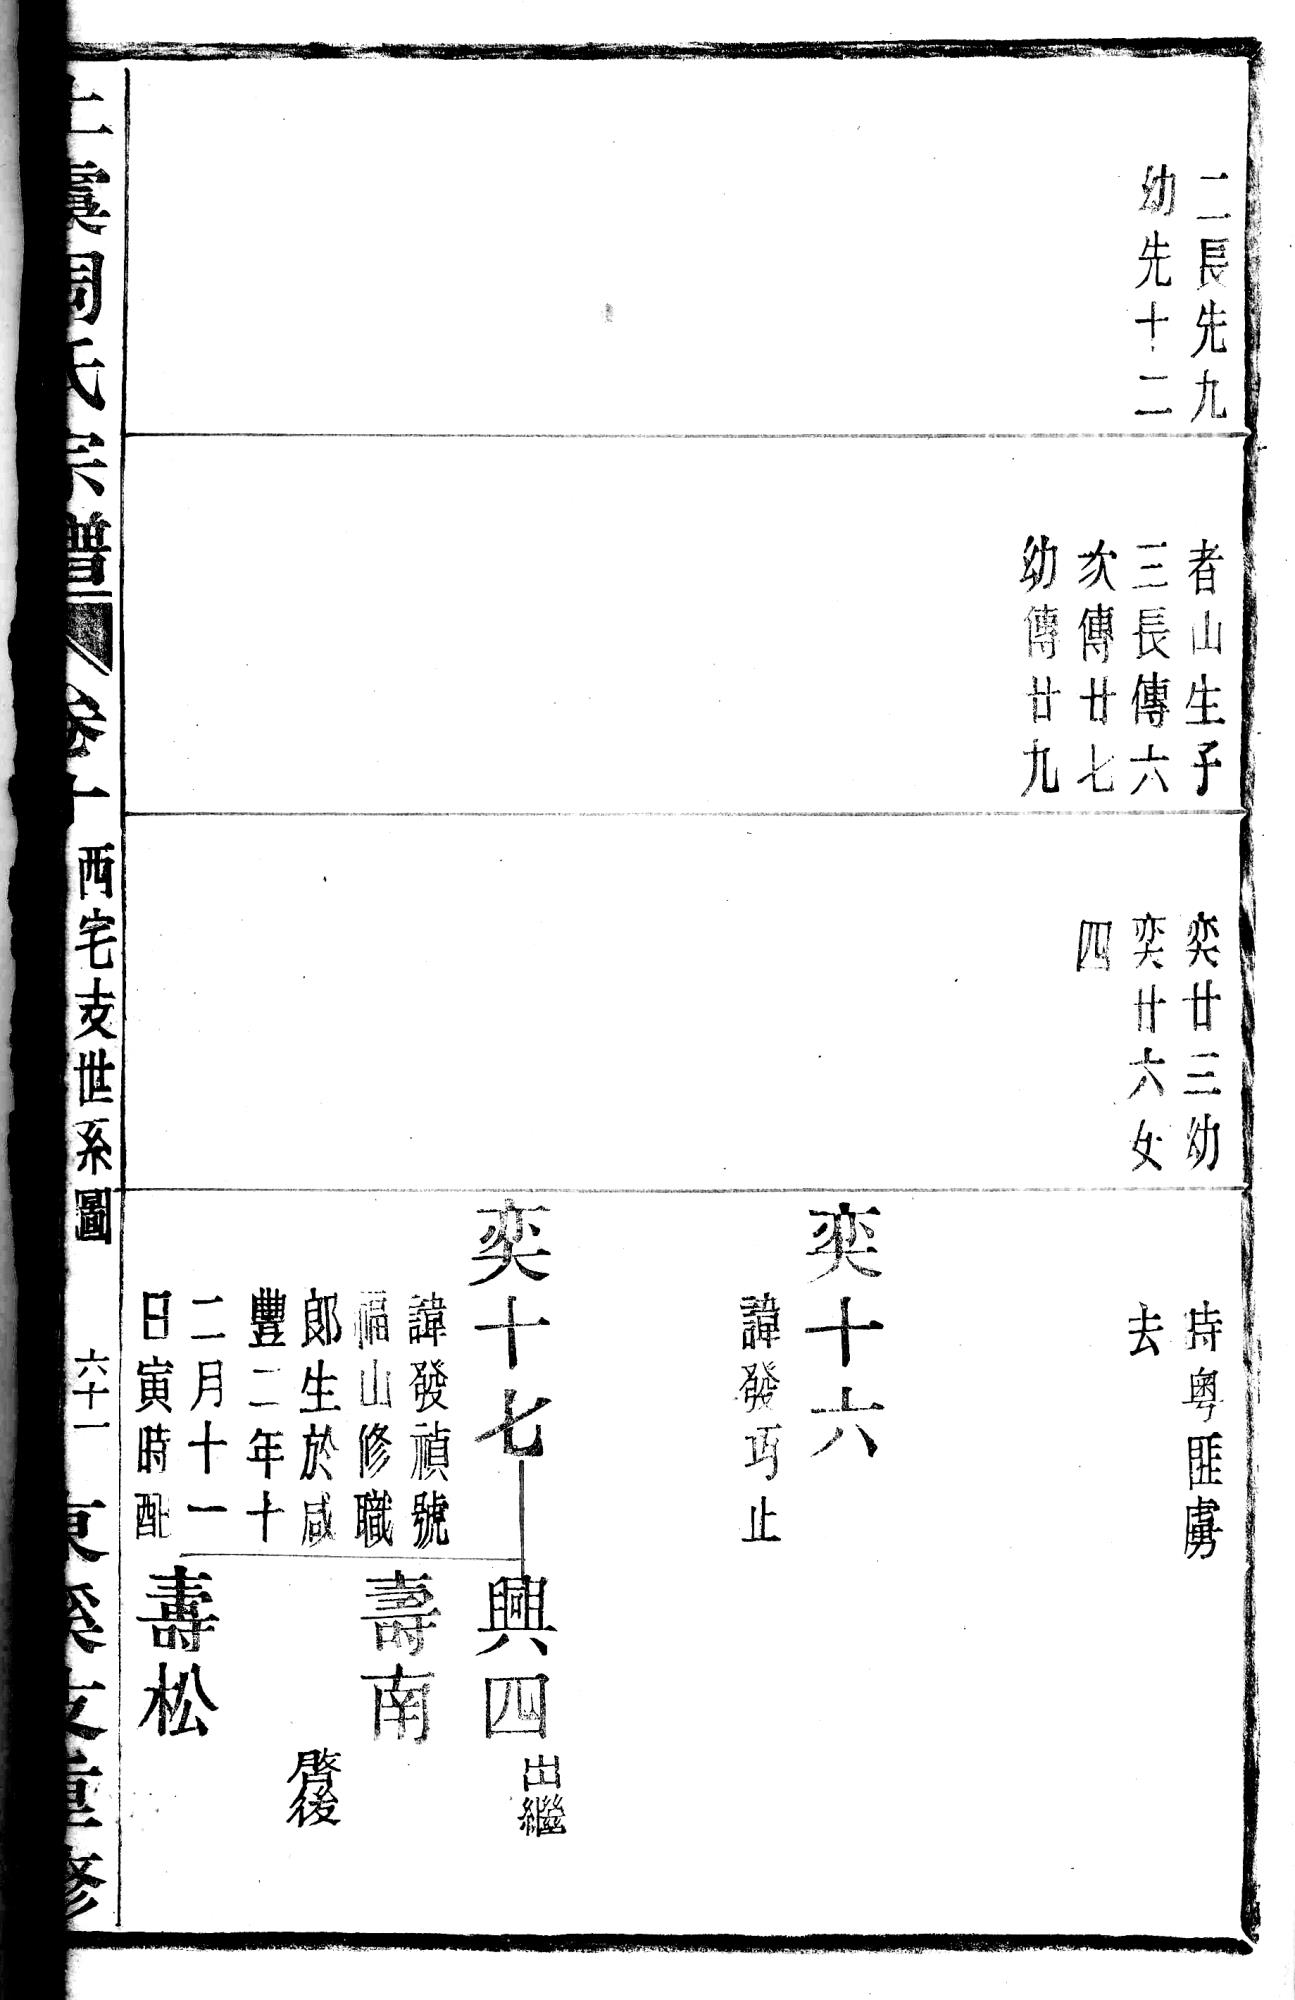 二長先九
幼先十二
者山生子
三長傳六
次傳廿七
幼傳廿九
奕廿三幼
奕廿六女
四
時粵匪虜
去
奕十六
諱發巧止
奕十七
諱發禎號
福山修職
郎生於咸
豐二年十
二月十一
日寅時配
興四
出繼
壽南
啓後
壽松
上虞周氏宗譜
卷十
西宅支世系圖
六十一
東溪支重修